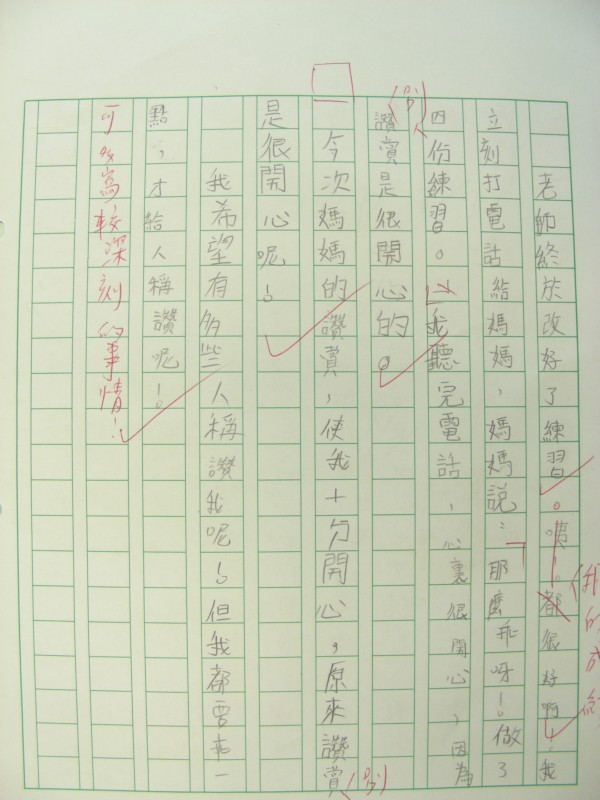 老師終於改好了練習。咦!都很好啊!我
立刻打電話給媽媽,媽媽說:「那麼乖呀!做了
四份練習。」我聽完電話,心裏很開心,因為
讚賞是很開心的。
今次媽媽的讚賞,使我十分開心,原來讚賞
是很開心呢!
我希望有多些人稱讚我呢!但我都要乖一
點,才給人稱讚呢!
可多寫較深刻的事情!
(別人
(別
(我的成績